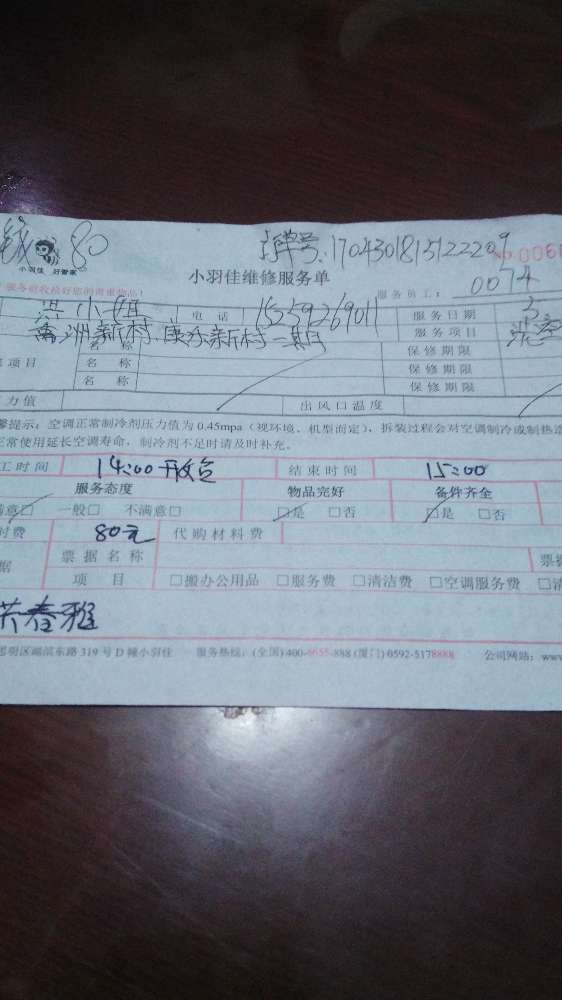 80 单号:1704301815122209
小羽佳 好管家 小羽佳维修服务单 No 0066
服务员工: 0074
小姐 电 话 15259269011 服务日期 5
禹洲新村.康乐新村二期 服务项目
名 称 保修期限
项目 名 称 保修期限
名 称 保修期限
力值 出风口温度
馨提示:空调正常制冷剂压力值为 0.45mpa(视环境、机型而定),拆装过程会对空调制冷或制热
正常使用延长空调寿命,制冷剂不足时请及时补充。
工时间 14:00 结束时间 15:00
服务态度 物品完好 备件齐全
满意□ 一般□ 不满意□ □是 □否 □是 □否
时费 80元 代购材料费
据 票据名称 票据
项 目 □搬办公用品 □服务费 □清洁费 □空调服务费 □清
春雅
思明区湖滨东路 319 号 D 幢小羽佳 服务热线:(全国)400-6655-888 (厦门)0592-5178888 公司网站:www